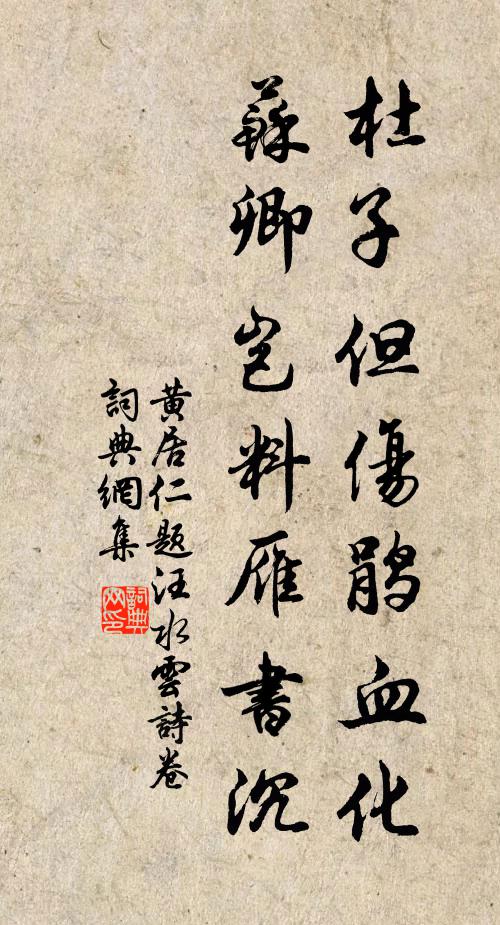 杜子但傷鵑血化
蘇卿豈料雁書沉
黄居仁題汪水雲詩卷
詞典網集
詞典網印